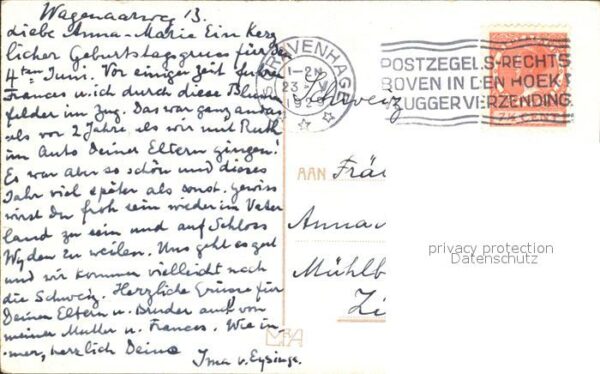 Wagenaarweg 13.
Liebe Anna-Marie Ein herz
licher Geburtstagsgruss für den
4ten Juni. Vor einiger Zeit fuhren
Frances u. ich durch diese Blumen
felder im Zug. Das war ganz anders
als vor 2 Jahre, als wir mit Ruth
im Auto Deiner Eltern gingen!
Es war aber so schön und dieses
Jahr viel später als sonst. Gewiss
wirst Du froh sein wieder im Vater
land zu sein und auf Schloss
Wyden zu weilen. Uns geht es gut
und wir kommen vielleicht nach
die Schweiz. Herzliche Grüsse für
Deinen Eltern u. Bruder auch von
meiner Mutter u. Frances. Wie im-
mer, herzlich Deine
Ima v. Eysinga.
'S GRAVENHAGE
1-2 N
23
19
POSTZEGELS RECHTS
BOVEN IN DEN HOEK =
VLUGGER VERZENDING.
7½ CENT
Schweiz
AAN Fräu
Anna
Mühlb
Zü
privacy protection
Datenschutz